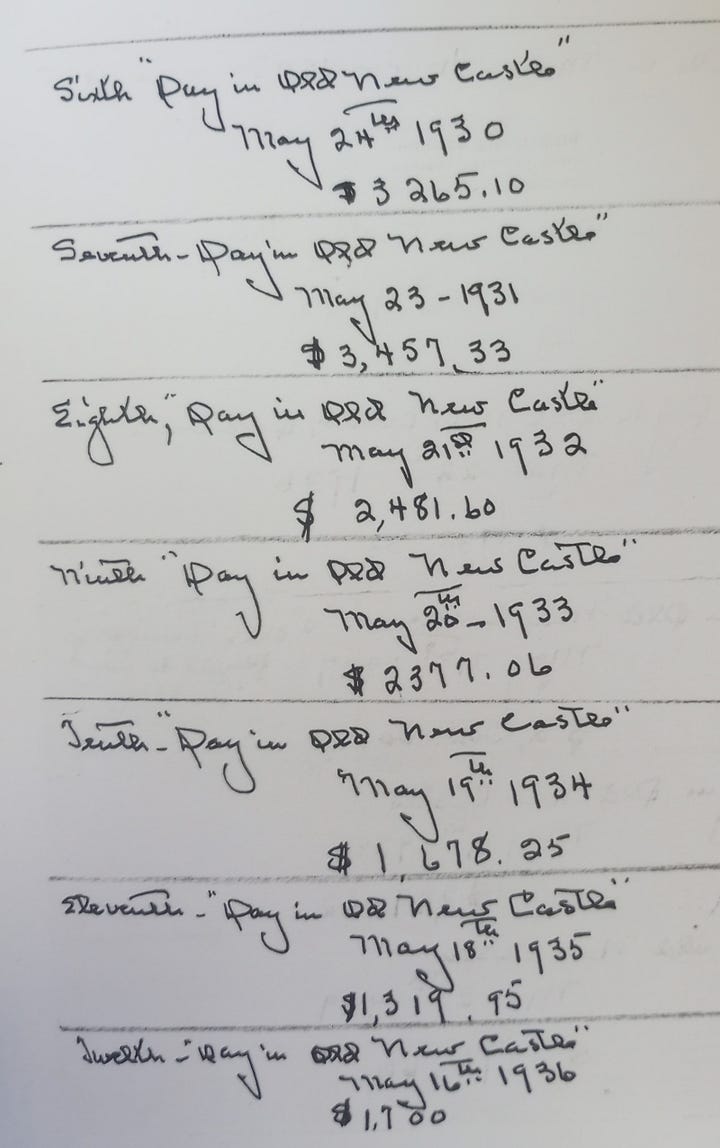 Sixth "Day in Old New Castle"
May 24th 1930
$ 3265.10
Seventh - Day in Old New Castle"
May 23 - 1931
$ 3,457.33
Eighth, "Day in Old New Castle"
May 21st 1932
$ 2,481.60
Ninth "Day in Old New Castle"
May 20th - 1933
$ 2377.06
Tenth - "Day in Old New Castle"
May 19th 1934
$ 1,678.25
Eleventh - "Day in Old New Castle"
May 18th 1935
$1,319.95
Twelth - "Day in Old New Castle"
May 16th 1936
$ 1,700